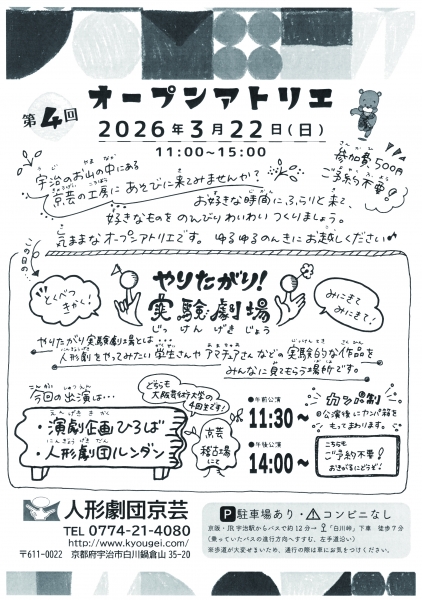 第4回
オープンアトリエ
2026年3月22日(日)
11:00〜15:00
参加費500円
ご予約不要!
宇治のお山の中にある
京芸の工房に あそびに来てみませんか?
お好きな時間に ふらりと来て、
好きなものを のんびりわいわい つくりましょう。
気ままなオープンアトリエです。 ゆるゆるのんきに お越しください♪
とくべつ
きかく!
やりたがり!
実験劇場
じっけんげきじょう
みにきて
みにきて!
やりたがり実験劇場とは
人形劇をやってみたい学生さんや アマチュアさんなどの 実験的な作品を
みんなに見てもらう場所です。
今回の出演は…
・演劇企画ひろば
・人形劇団ルンダン
どちらも
大阪芸術大学の
4回生です!
京芸
稽古場
にて
●午前公演
11:30〜
●午後公演
14:00〜
カンパ制
※公演後にカンパ箱を
もってまわります。
こちらも
ご予約不要!
おきがるにどうぞ!
人形劇団京芸
TEL 0774-21-4080
https://www.kyougei.com/
〒611-0022 京都府宇治市白川鍋倉山35-20
P 駐車場あり・⚠コンビニなし
京阪・JR宇治駅からバスで約12分→「白川峠」下車 徒歩7分
(乗っていたバスの進行方向へすすむ、左手道沿い)
※歩道が大変せまいため、通行の際は車にお気をつけください。